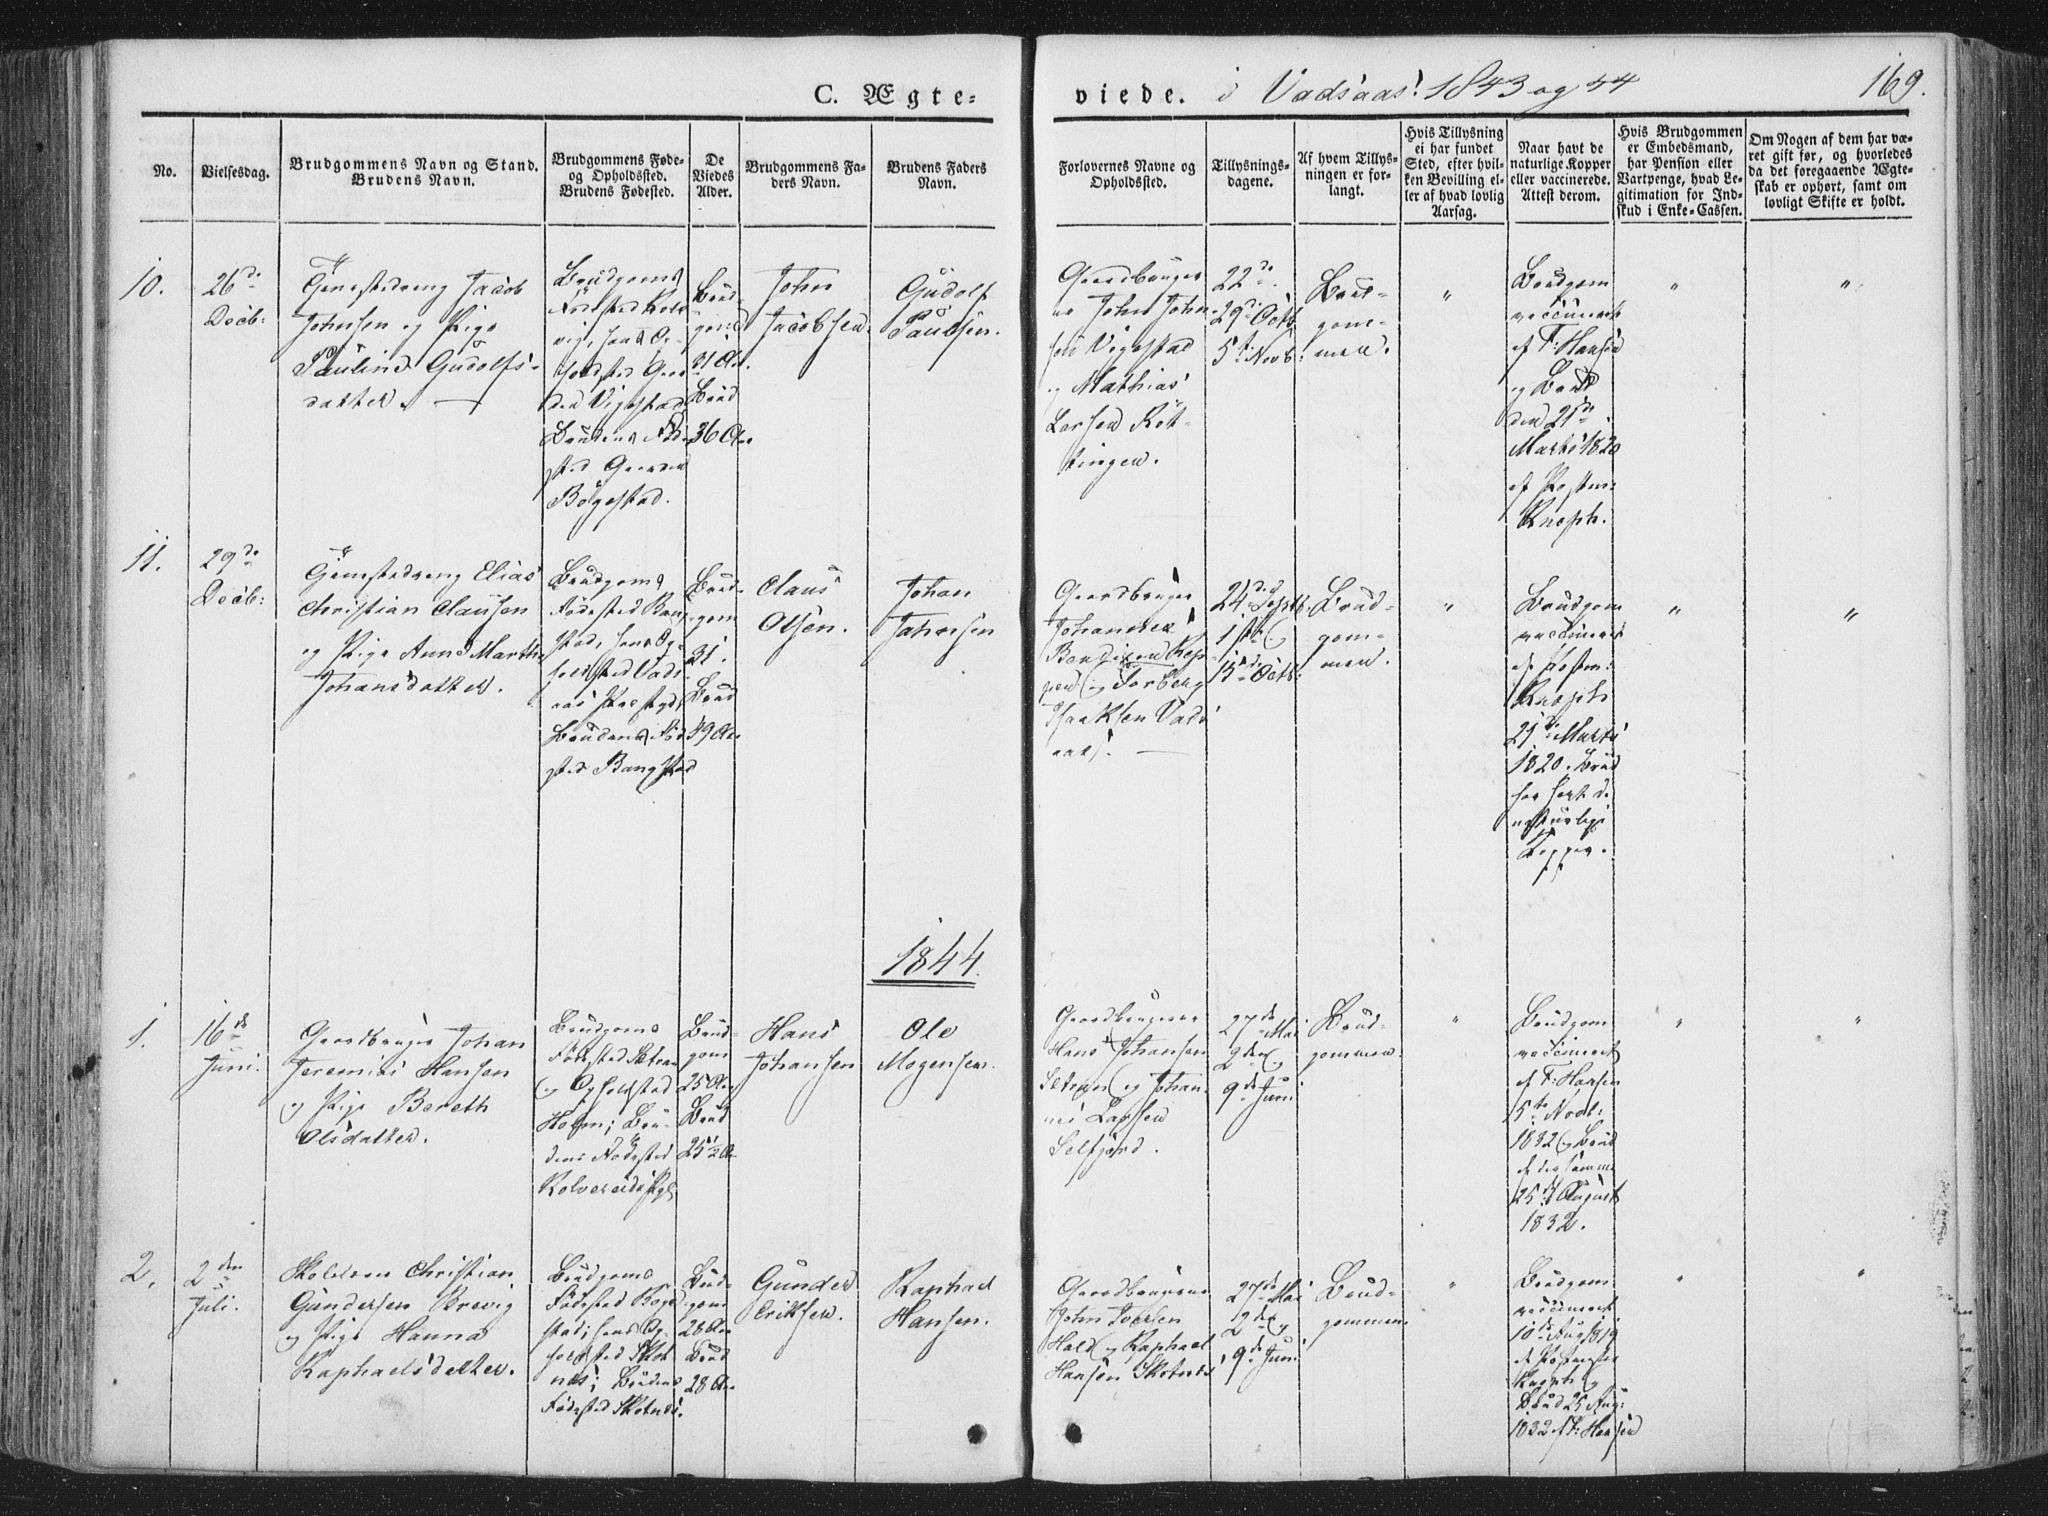 C. Ægte-
viede. i Vadsaas 1843 og 44
169.
No.
Vielsesdag.
Brudgommens Navn og Stand.
Brudens Navn.
Brudgommens Føde-
og Opholdssted.
Brudens Fødested.
De
Viedes
Alder.
Brudgommens Fa-
ders Navn.
Brudens Faders
Navn.
Forlovernes Navne og
Opholdssted.
Tillysnings-
dagene.
Af hvem Tillys-
ningen er for-
langt.
Hvis Tillysning
ei har fundet
Sted, efter hvil-
ken Bevilling el-
ler af hvad lovlig
Aarsag.
Naar havt de
naturlige Kopper
eller vaccinerede.
Attest derom.
Hvis Brudgommen
er Embedsmand,
har Pension eller
Vartpenge, hvad Le-
gitimation for Ind-
skud i Enke-Cassen.
Om Nogen af dem har væ-
ret gift før, og hvorledes
da det foregaaende Ægte-
skab er ophørt, samt om
lovligt Skifte er holdt.
10.
26de
Decb:
Jacob
Johnsen og Pige
Pauline Gudolfs-
datter.
Brudgoms
Fødested
vig, hans Op-
holdsted
Vigestad
Brudens Fød-
sted Gaarden
Bögestad.
Brud-
gom
31 Aar.
Brud
36 Aar
John
Jacobsen.
Gudolf
Paulsen.
Gaardbruger
ne John John-
sen Vigestad
og Mathias
Larsen Röt-
tingen.
22de
29de Octb
5te Novb:
Brud-
gom-
men.
"
Brudgom
vaccineret
af F: Hansen
og Brud
den 21de
Marts 1820
af Postm:
Knoph.
"
"
11.
29de
Decb:
Elias
Christian Clausen
og Pige Anne Marthe
Johansdatter.
Brudgoms
Fødested Bang-
stad, hans Op-
holdsted Vads-
aas Præstgd,
Brudens Fød-
sted Bangstad
Brud-
gom
31.
Brud
39 Aar
Claus
Olsen.
Johan
Johnsen
Gaardbruger
Johannes
og Torberg
Isaksen Vads
aas.
24de Septb.
1ste og
15de Octb:
Brud-
gom-
men.
"
Brudgom
vaccineret
af Postm:
Knoph
21de Marts
1820. Brud
har havt de
naturlige
Kopper.
"
"
1844.
1.
16de
Juni.
Gaardbruger Johan
Jeremias Hansen
og Pige Bereth
Olsdatter.
Brudgoms
Fødested Setran
og Opholdsted
Holm; Bru-
dens Fødested
Kolvereids Pgl
Brud-
gom
25 Aar
Brud
25 1/2 A.
Hans
Johansen
Ole
Mogensen.
Gaardbrugerne
Hans Johansen
Setran og Johan-
nes Larsen
Selfjord.
27de Mai
2den og
9de Juni
Brud-
gommen.
"
Brudgom
vaccineret
af F: Hansen
5te Novb:
1832 og Brud
af den samme
25de August
1832.
"
"
2.
2den
Juli.
Christian
Gundersen Brevig
og Pige Hanna
Raphaelsdatter.
Brudgoms
Fødested Böge-
stad; hans Op-
holdsted Skot-
næs; Brudens
Fødested Skotnæs.
Brud-
gom
28 Aar
Brud
28 Aar
Gunder
Eriksen.
Raphael
Hansen.
Gaardbrugerne
John Iversen
Hald og Raphael
Hansen Skotnæs
27de Mai
2den og
9de Juni
Brud-
gommen.
"
Brudgom
vaccineret
10de Aug 1819
af Postmester
Knoph og
Brud 25 Aug:
1832 af F: Hansen
"
"